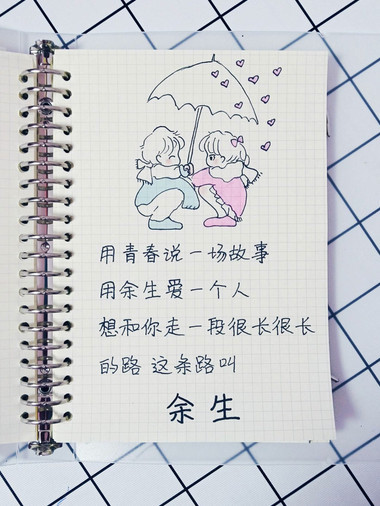 用青春说一场故事
用余生爱一个人
想和你走一段很长很长
的路 这条路叫
余生